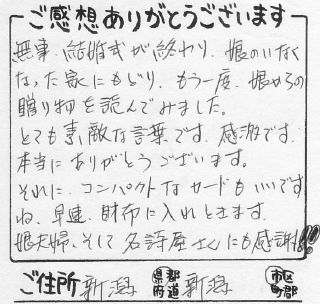 ご感想ありがとうございます
無事、結婚式が終わり、娘のいなく
なった家にもどり、もう一度、娘からの
贈り物を読んでみました。
とても素敵な言葉です。感激です。
本当にありがとうございます。
それに、コンパクトなカードもいいです
ね、早速、財布に入れときます。
娘夫婦、そして名詩屋さんにも感謝!!!
ご住所 新潟 都道府県 新潟 市区町郡